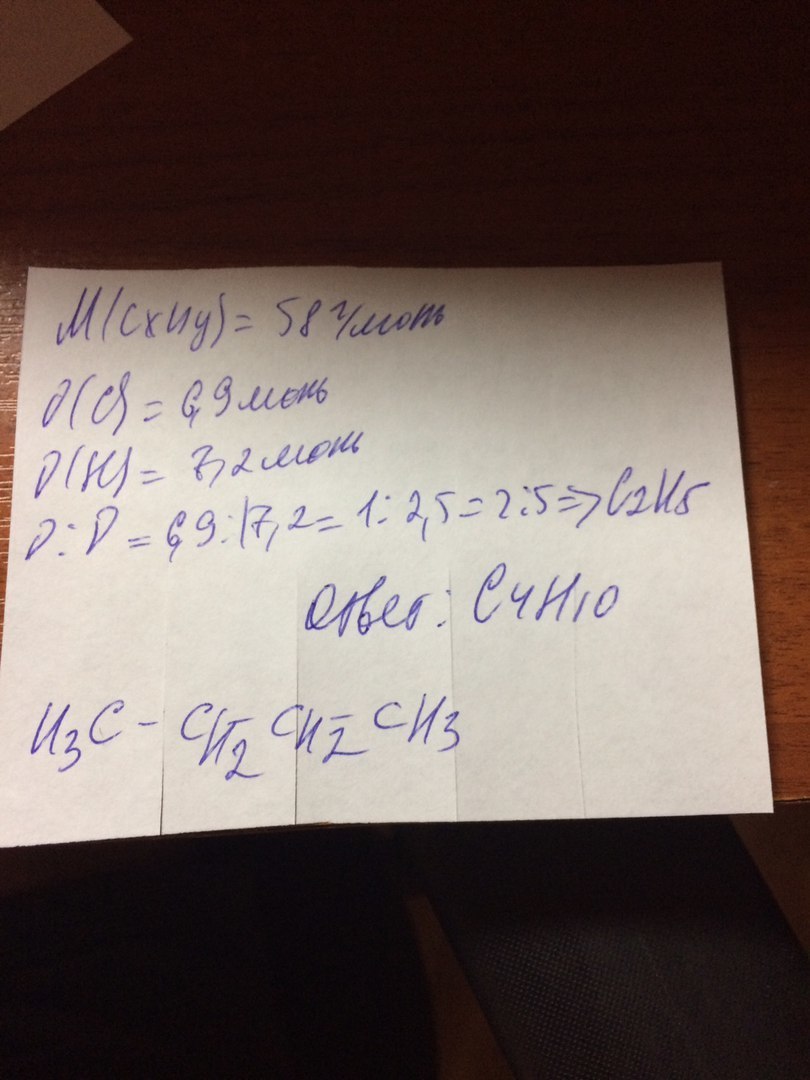 M(CxHy) = 58 г/моль
ν(C) = 6,9 моль
ν(H) = 7,2 моль
ν:ν = 6,9:17,2 = 1:2,5 = 2:5 => C2H5
Ответ: C4H10
H3C - CH2 - CH2 - CH3